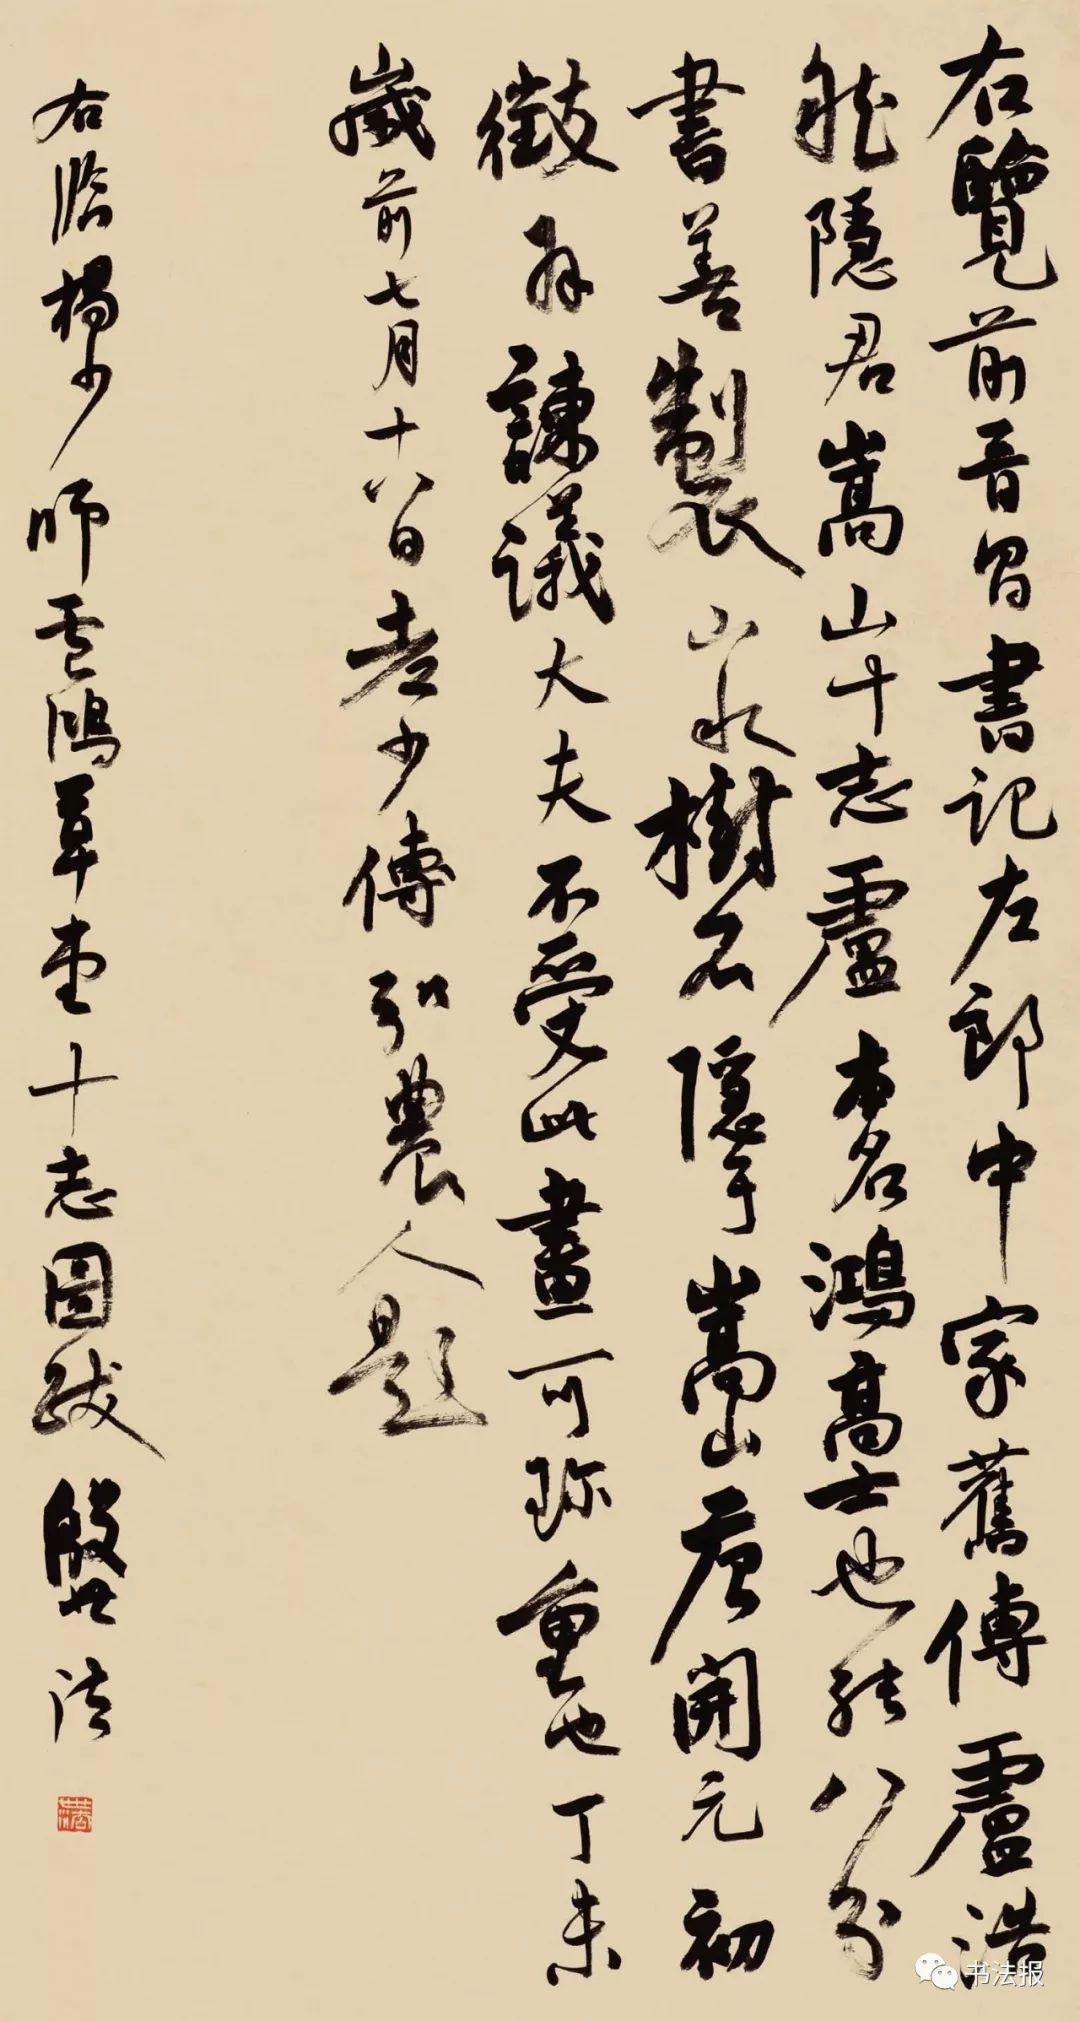 右覽前晉昌書記左郎中家舊傳盧浩
然隱君嵩山十志盧本名鴻高士也能八分
書善製山水樹石隱于嵩山唐開元初
徵拜諫議大夫不受此畫可珎重也丁未
歲前七月十八日老少傅弘農人題
右臨楊少師盧鴻草堂十志圖跋
书法报